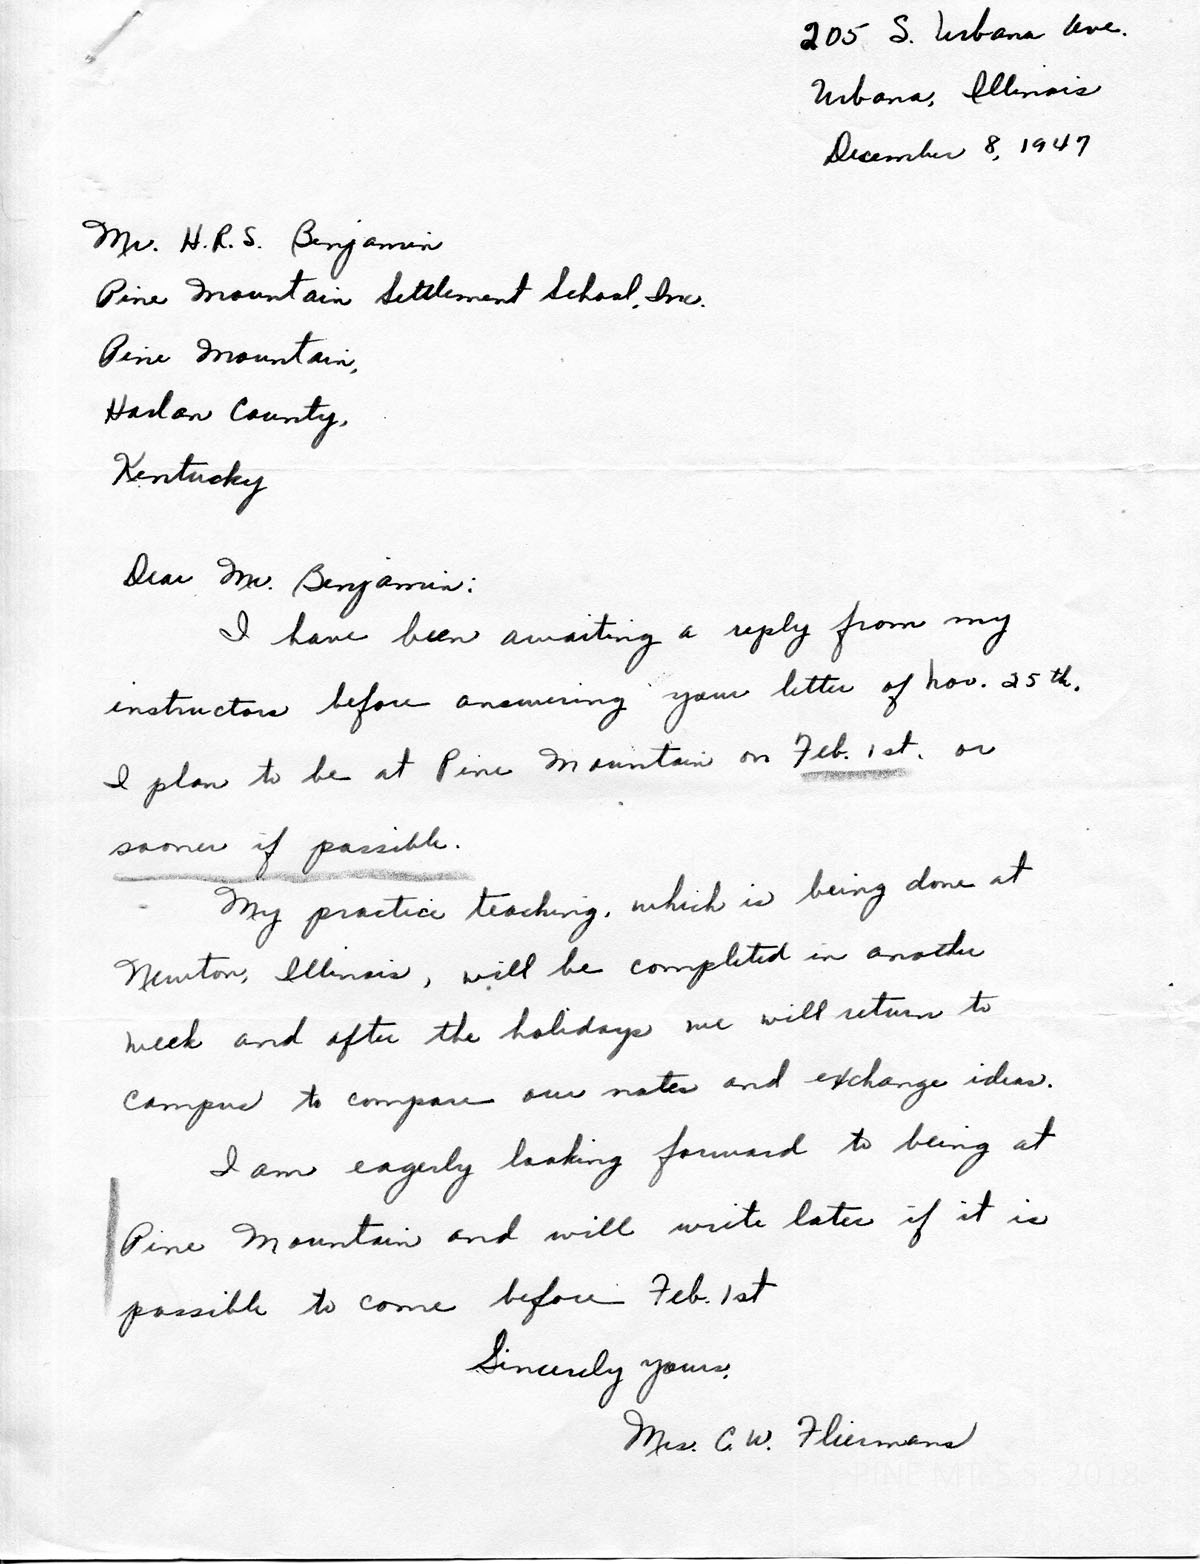 205 S. Urbana Ave.
Urbana, Illinois
December 8, 1947
Mr. H.R.S. Benjamin
Pine Mountain Settlement School, Inc.
Pine Mountain,
Harlan County,
Kentucky
Dear Mr. Benjamin:
I have been awaiting a reply from my
instructors before answering your letter of Nov. 25th.
I plan to be at Pine Mountain on Feb. 1st. or
sooner if possible.
My practice teaching, which is being done at
Newton, Illinois, will be completed in another
week and after the holidays we will return to
campus to compare our notes and exchange ideas.
I am eagerly looking forward to being at
Pine Mountain and will write later if it is
possible to come before Feb. 1st
Sincerely yours,
Mrs. C. W. Fliermans
PINE MT. S.S. 2018